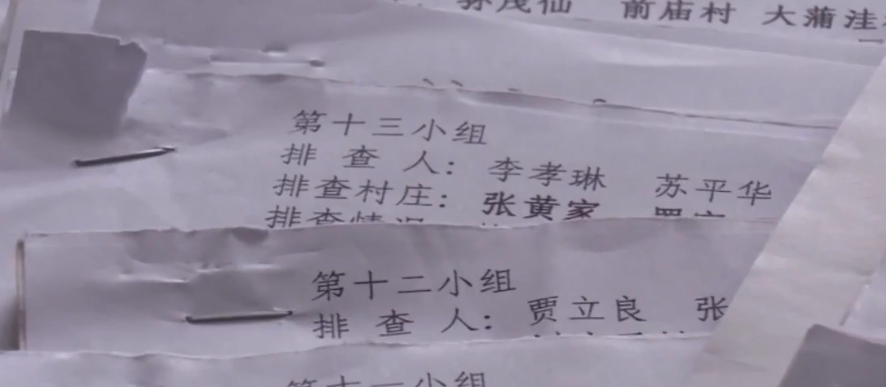 孙茂仙 前庙村 大蒲洼
第十三小组
排查人： 李孝琳 苏平华
排查村庄： 张黄家
排查情况
第十二小组
排查人： 贾立良 张
第十一小组